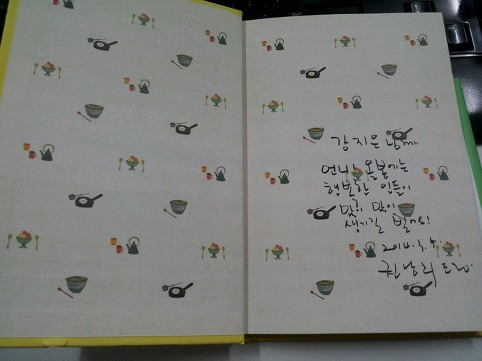 강지은 님께
언니! 올봄에는
행복한 일들이
많이 많이
생기길 빌어요!
드림.